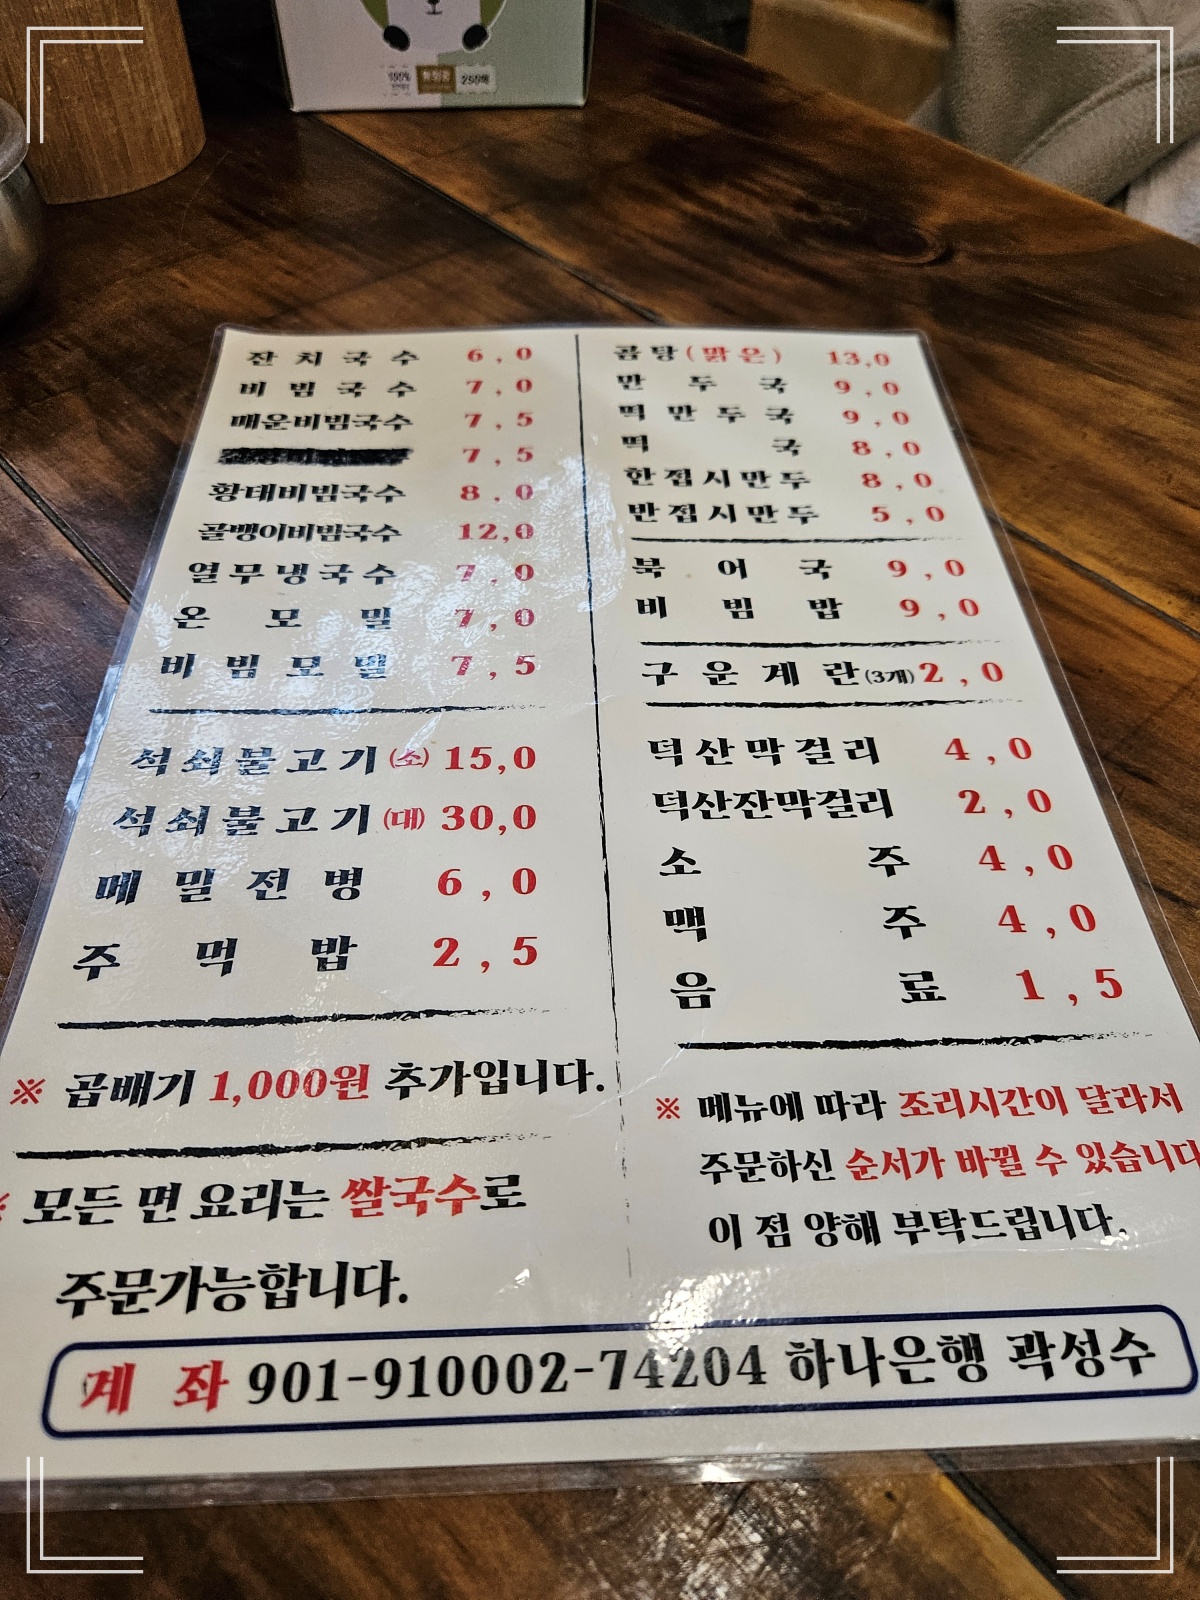 100%
250매
잔치국수 6,0
비빔국수 7,0
매운비빔국수 7,5
7,5
황태비빔국수 8,0
골뱅이비빔국수 12,0
열무냉국수 7,0
온모밀 7,0
비빔모밀 7,5
석쇠불고기(소) 15,0
석쇠불고기(대) 30,0
메밀전병 6,0
주먹밥 2,5
※ 곱배기 1,000원 추가입니다.
※ 모든 면 요리는 쌀국수로
주문가능합니다.
곰탕(맑은) 13,0
만두국 9,0
떡만두국 9,0
떡국 8,0
한접시만두 8,0
반접시만두 5,0
북어국 9,0
비빔밥 9,0
구운계란(3개) 2,0
덕산막걸리 4,0
덕산잔막걸리 2,0
소주 4,0
맥주 4,0
음료 1,5
※ 메뉴에 따라 조리시간이 달라서
주문하신 순서가 바뀔 수 있습니다
이 점 양해 부탁드립니다.
계좌 901-910002-74204 하나은행 곽성수